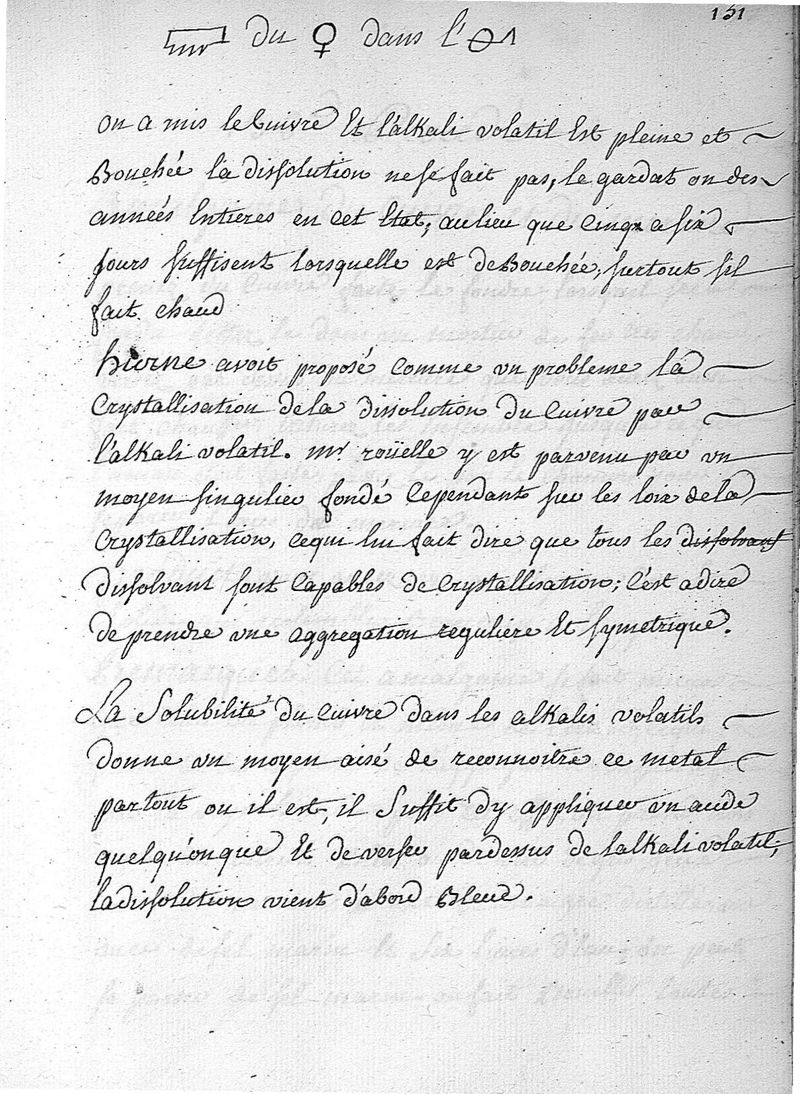 151
du ♀ dans l'
on a mis le Cuivre Et l'alkali volatil Est pleine et
Bouchée la dissolution ne se fait pas, le gardat on des
années Entieres en cet Etat, au lieu que Cinq a six
jours suffisent lorsquelle est deBouchée, surtout s'il
fait chaud
hierne avoit proposé Comme un probleme la
Crystallisation de la dissolution du Cuivre par
l'alkali volatil. mr roüelle y est parvenu par un
moyen singulier fondé Cependant sur les loix de la
Crystallisation, cequi lui fait dire que tous les dissolvant
Dissolvant sont Capables de Crystallisation; C'est a dire
de prendre une aggregation reguliere Et symetrique.
La Solubilité du Cuivre dans les alkalis volatils
donne un moyen aisé de reconnoitre ce metal
partout ou il est, il Suffit d'y appliquer un acide
quelqu'onque Et de verser pardessus de l'alkali volatil;
la dissolution vient d'abord Bleue.